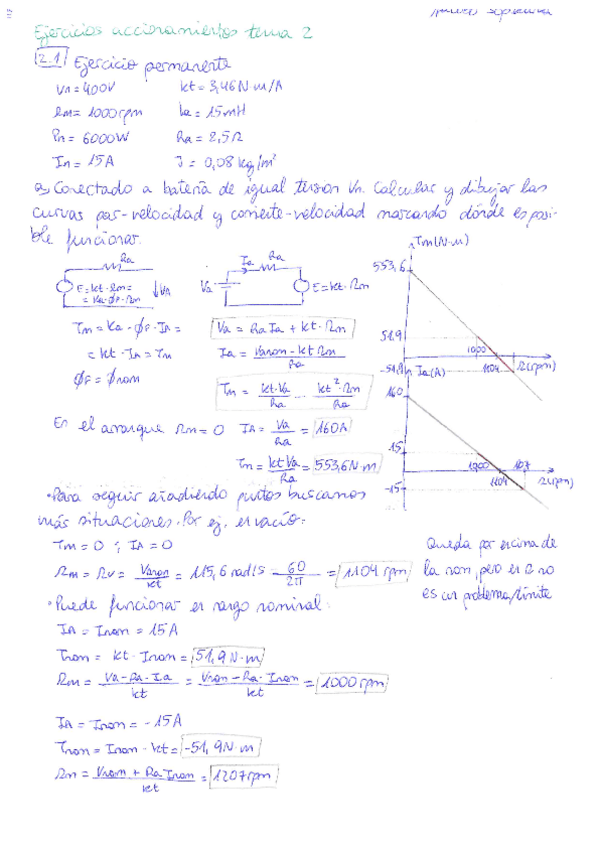 Ejercicios accionamientos tema 2
2.1 Ejercicio permanente
Vn = 400V kt = 3,46 N·m/A
Ωm = 1000 rpm La = 15mH
Pn = 6000W Ra = 2,5Ω
In = 15A J = 0,08 kg/m²
a) Conectado a batería de igual tensión Vn. Calcular y dibujar las
curvas par-velocidad y corriente-velocidad marcando dónde es posi-
ble funcionar.
Ra
E = kt·Ωm =
= Ka·ϕF·Ωm
VA
Ia Ra
Va
E = kt·Ωm
Tm(N·m)
553,6
51,9
-51,9
1000
1104
Ω(rpm)
Ia(A)
160
15
-15
1000
1104
Ω(rpm)
Tm = Ka·ϕF·IA =
= kt·IA = Tm
ϕF = ϕnom
Va = RaIa + kt·Ωm
IA = (Vanom - kt Ωm)/Ra
Tm = kt·Va/Ra - kt²·Ωm/Ra
En el arranque Ωm = 0 IA = Va/Ra = 160A
Tm = kt Va/Ra = 553,6 N·m
• Para seguir añadiendo puntos buscamos
más situaciones. Por ej, en vacío:
Tm = 0 ; IA = 0
Ωm = Ωv = Vanom/kt = 115,6 rad/s · 60/2π = 1104 rpm
Queda por encima de
la nom, pero en Ω no
es un problema/límite
• Puede funcionar en rango nominal:
IA = Inom = 15A
Tnom = kt·Inom = 51,9 N·m
Ωm = (Va - Ra·Ia)/kt = (Vnom - Ra·Inom)/kt = 1000 rpm
IA = Inom = -15A
Tnom = Inom·kt = -51,9 N·m
Ωm = (Vnom + Ra Inom)/kt = 1207 rpm